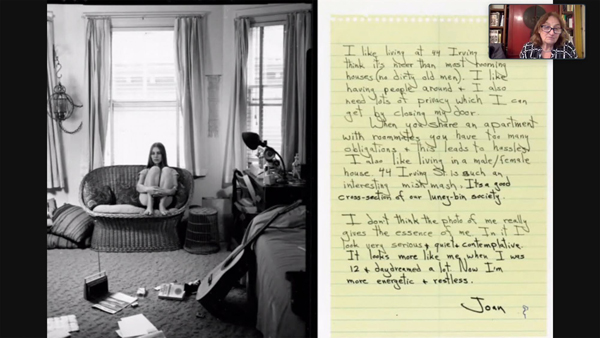 I like living at 44 Irving
think it's nicer than most rooming
houses (no dirty old men). I like
having people around & I also
need lots of privacy which I can
get by closing my door.
When you share an apartment
with roommates you have too many
obligations & this leads to hassles.
I also like living in a male/female
house. 44 Irving St. is such an
interesting mish mash. Its a good
cross-section of our luney-bin society.
I don't think the photo of me really
gives the essence of me. In it I
look very serious & quiet & contemplative.
It looks more like me when I was
12 & daydreamed a lot. Now I'm
more energetic & restless.
Joan